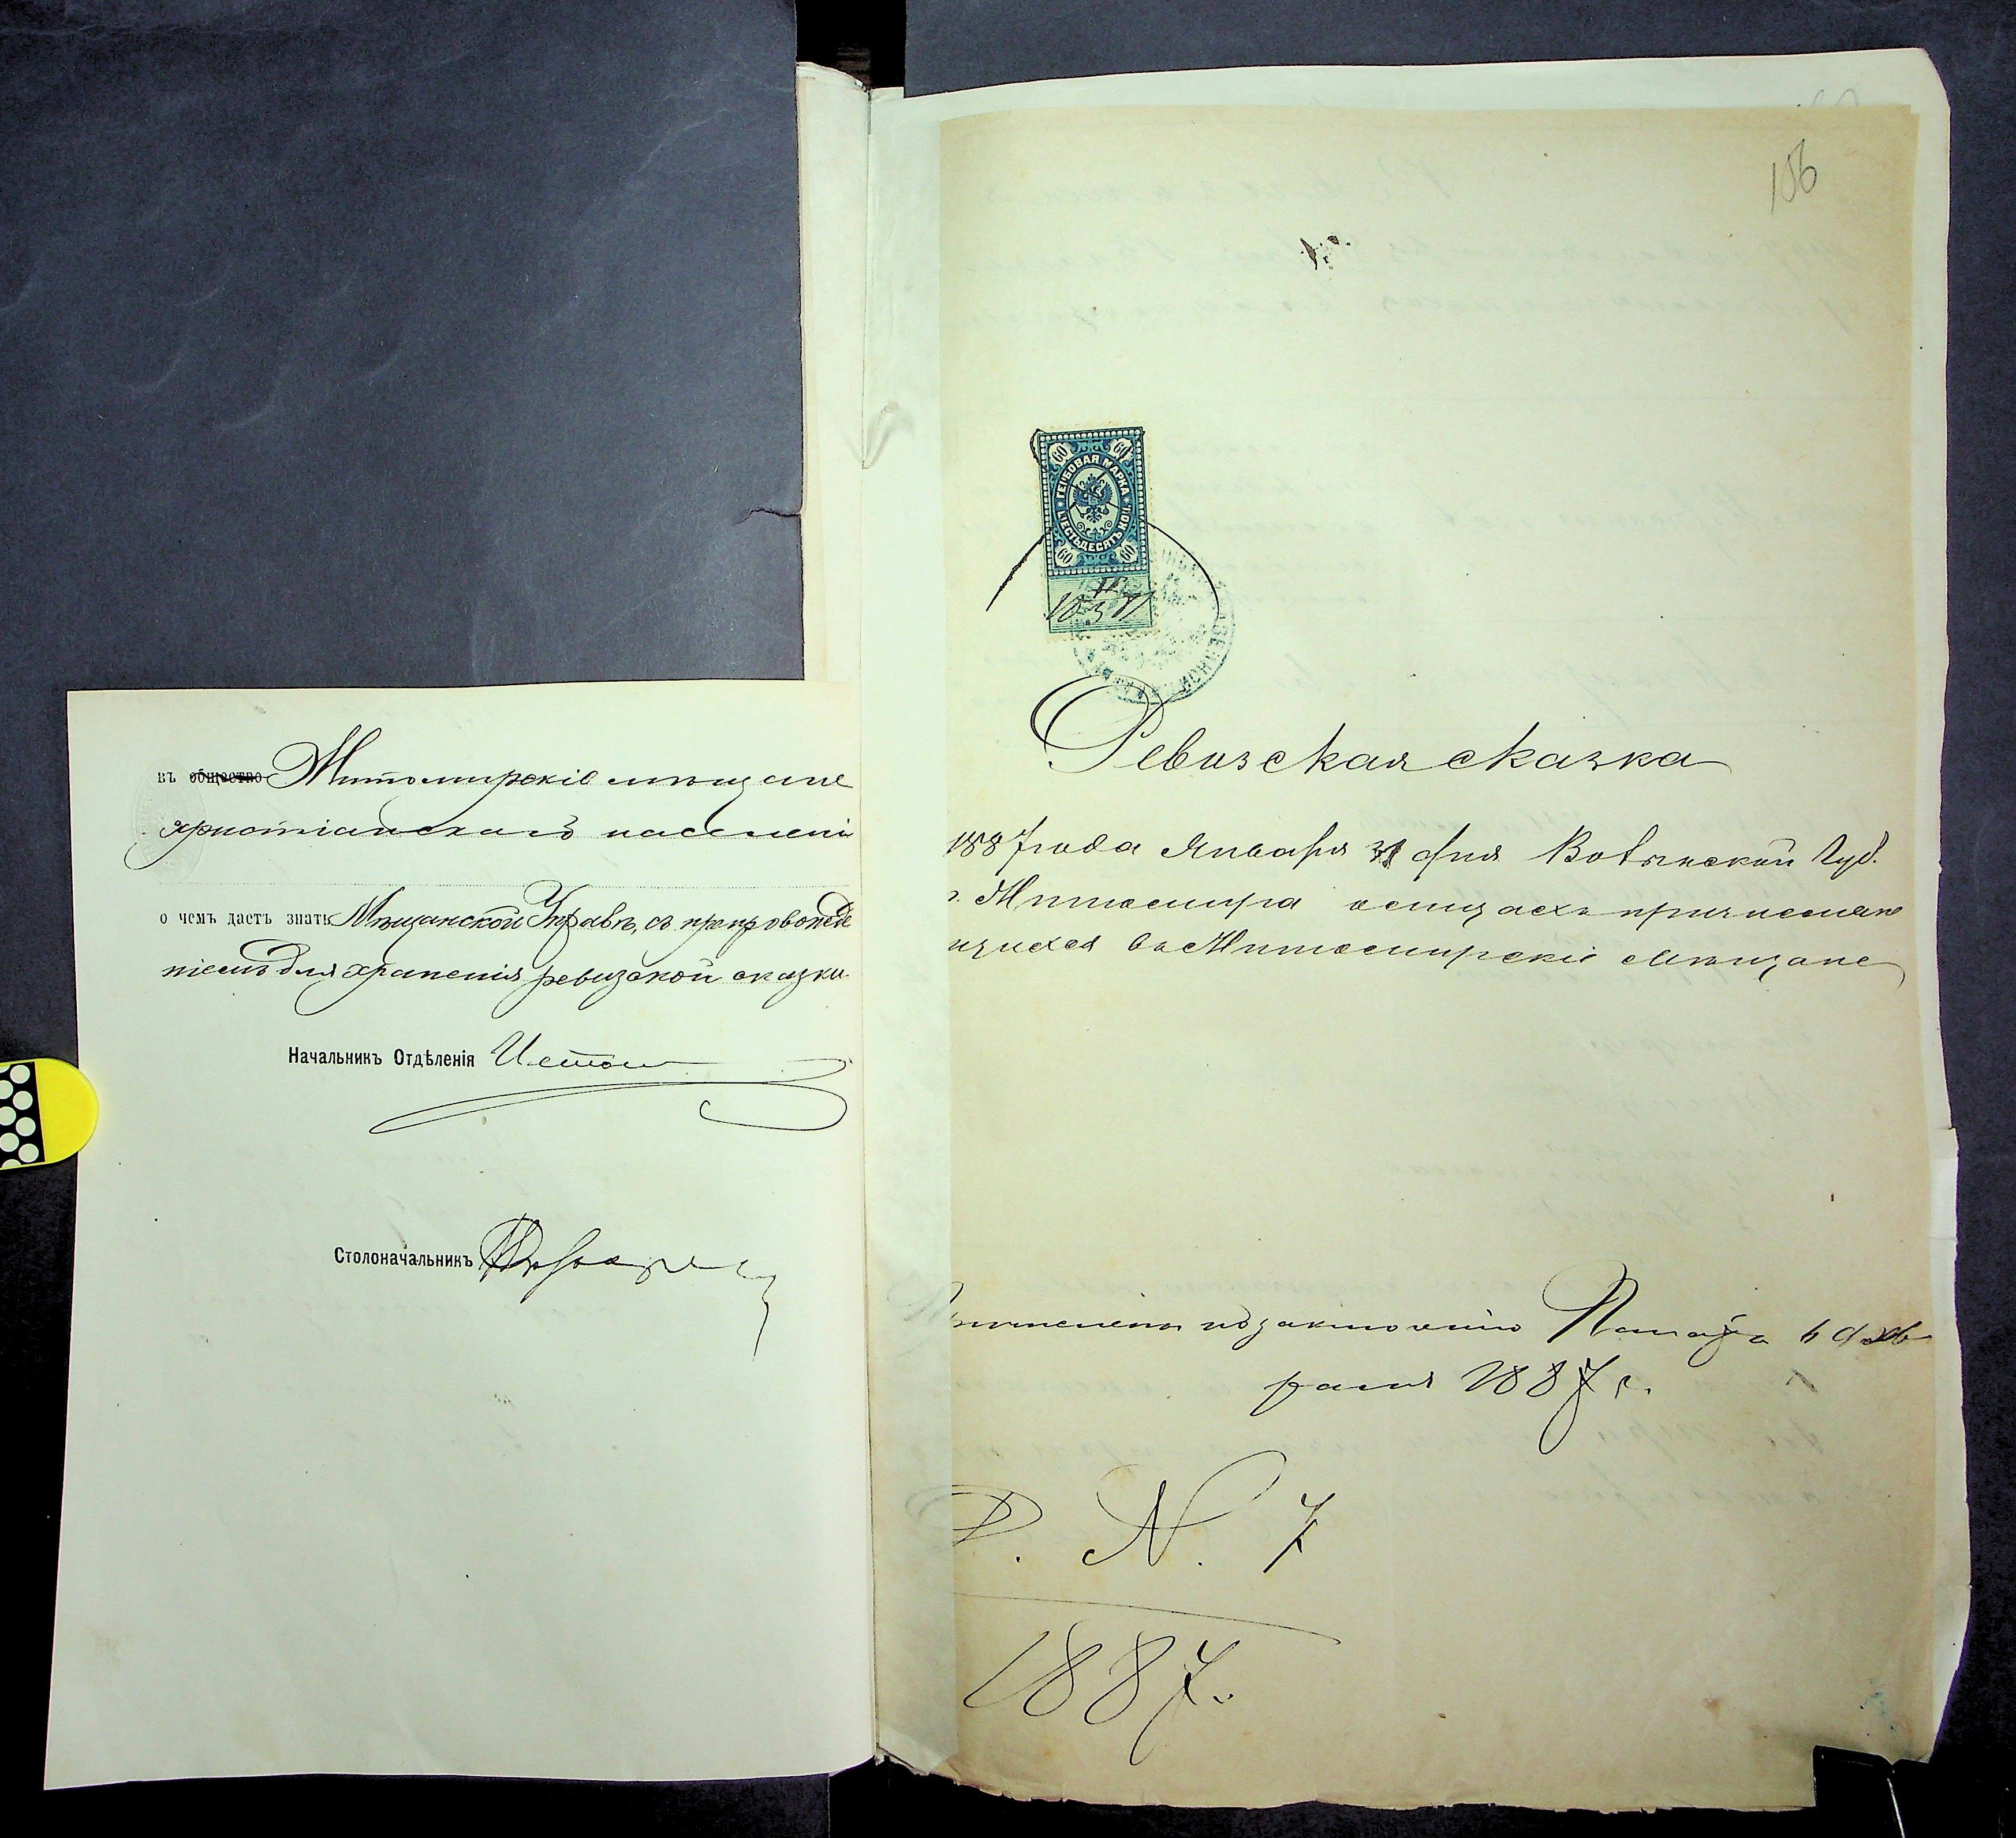 въ общество Житомирскіе мѣщане
христіанскаго населенія
о чемъ даетъ знать Мѣщанской Управѣ, съ препровожде
ніемъ для храненія ревизской сказки
Начальникъ Отдѣленія
Столоначальникъ
106
60 60
ГЕРБОВАЯ МАРКА
ШЕСТЬДЕСЯТЪ КОП.
60 60
Ревизская сказка
1887 года Января 31 дня Волынской Губ.
г. Житомира о лицахъ причисляю
щихся въ Житомирскіе Мѣщане
Причислены по заключенію Палаты 6 Фев
раля 1887 г.
Д. N. 7
1887.